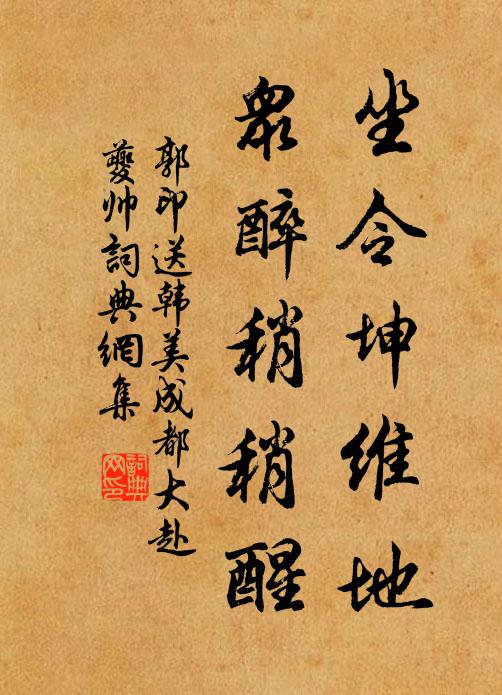 坐令坤维地
眾醉稍稍醒
郭印送韩美成都大赴
夔帅詞典網集
詞典网印